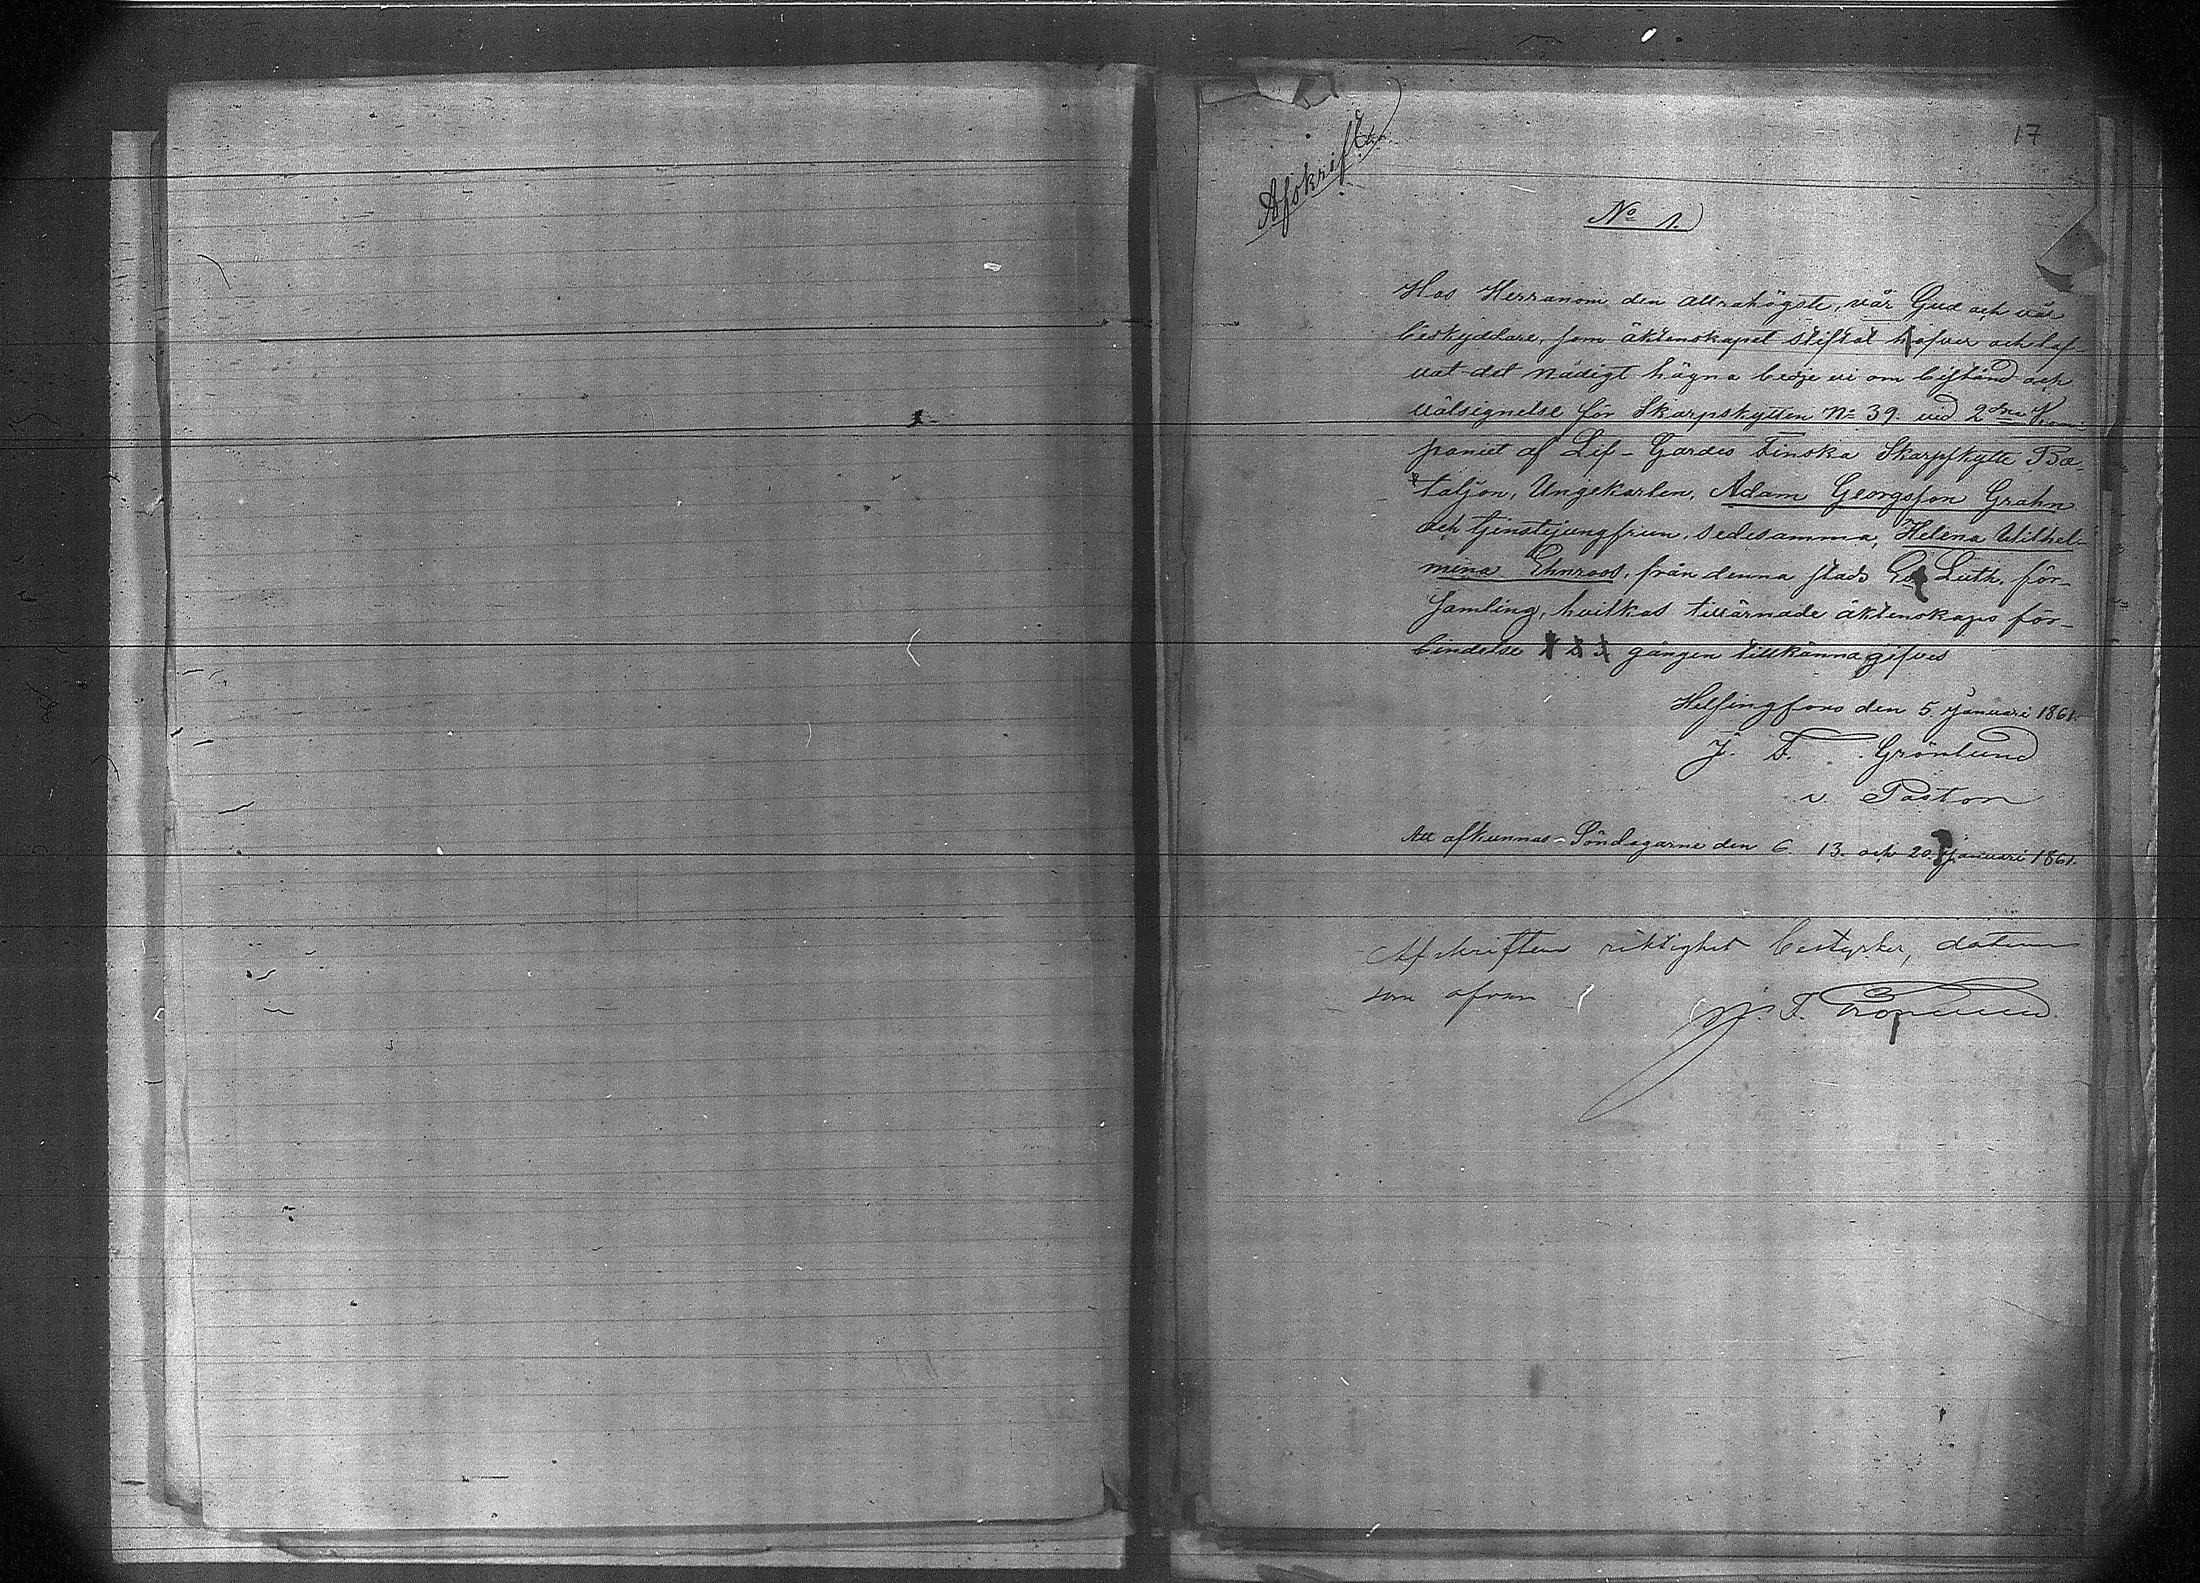 17
Afskrift
No 1.
Hos Herranom den allrahögste, vår Gud och vår
beskyddare, som äktenskapet stiftat hafver och lof-
vat det nådigt hägna bedje vi om bistånd och
välsignelse för Skarpskytten No 39. vid 2dra Kom-
paniet af Lif-Gardes Finska Skarpskytte Ba-
taljon, Ungekarlen, Adam Georgsson Grahn
och tjenstejungfrun, sedesamma, Helena Wilhel-
mina Ehnroos, från denna stads Ev Luth. för-
samling, hvilkas tillärnade äktenskaps för-
bindelse 1 2 3 gången tillkännagifves
Helsingfors den 5 Januari 1861.
J. F. Grönlund
v. Pastor
Att afkunnas Söndagarne den 6. 13. och 20. Januari 1861.
Afskriftens riktighet bestyrker, datum
som ofvan
J. F. Grönlund